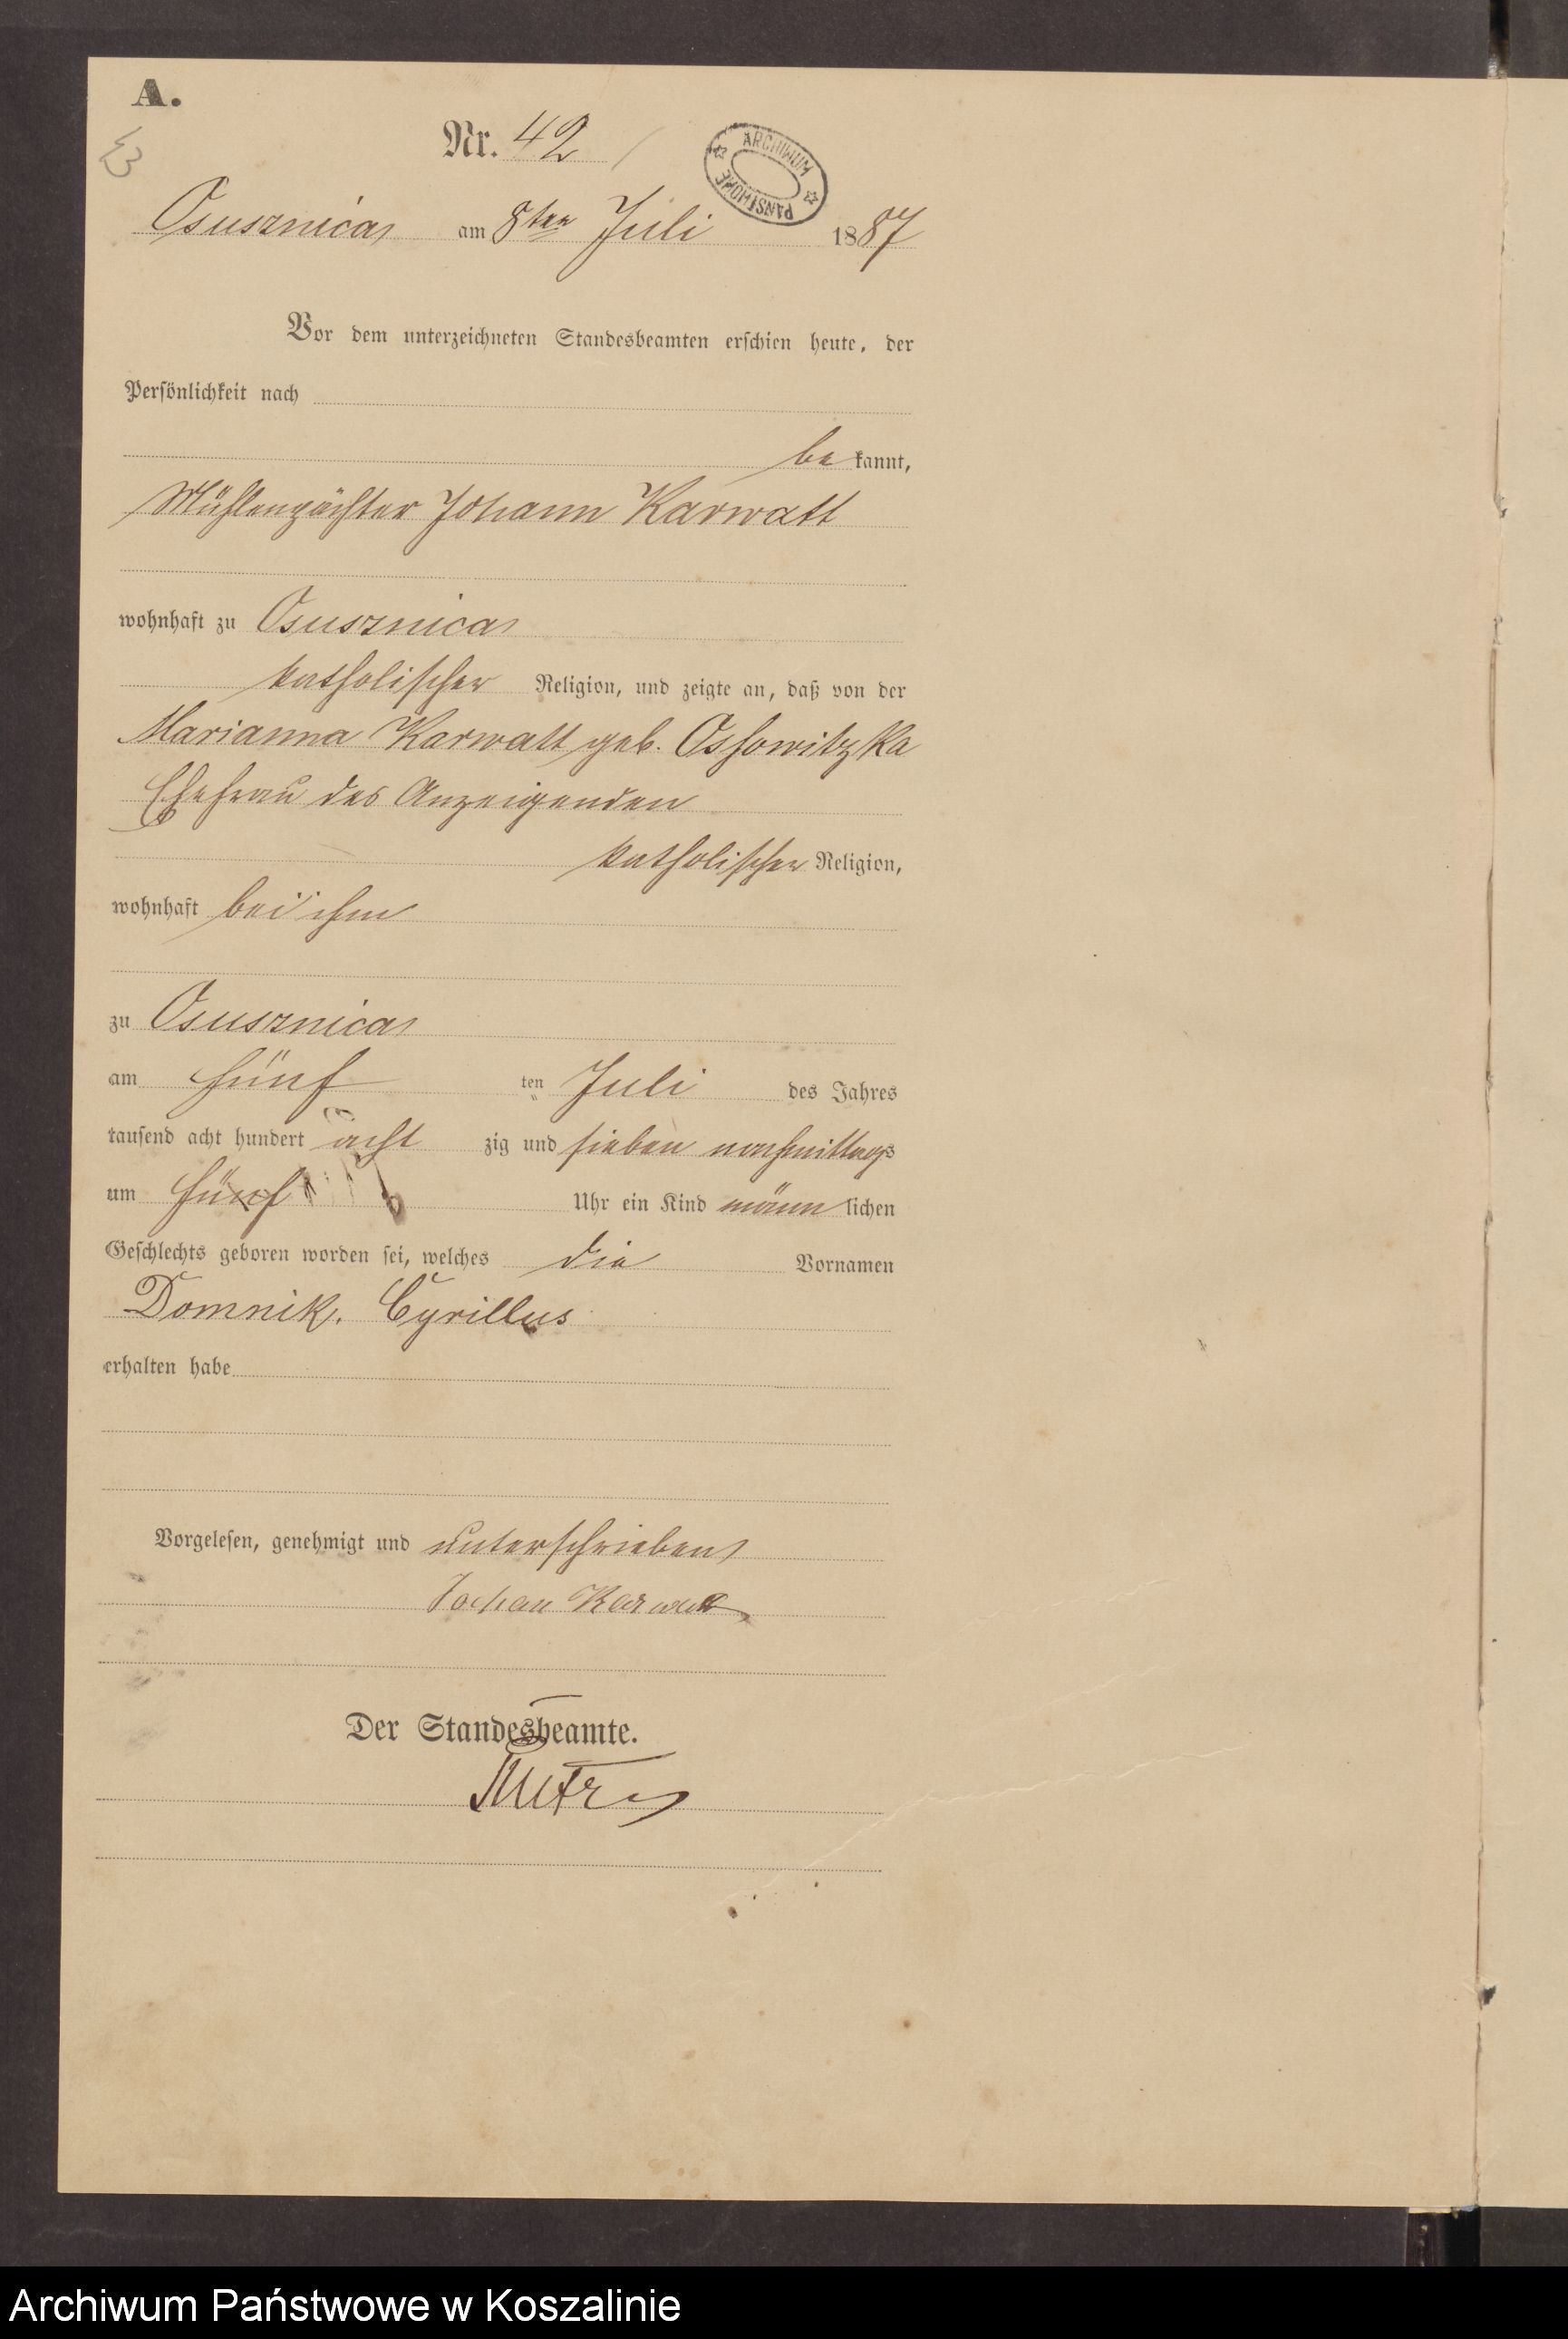 A.
43
Nr. 42
ARCHIWUM PAŃSTWOWE
Osusznica am 8ten Juli 1887
Vor dem unterzeichneten Standesbeamten erschien heute, der
Persönlichkeit nach
be kannt,
Mühlenpächter Johann Karwatt
wohnhaft zu Osusznica
katholischer Religion, und zeigte an, daß von der
Marianna Karwatt geb. Ossowitzka
Ehefrau des Anzeigenden
katholischer Religion,
wohnhaft bei ihm
zu Osusznica
am fünf ten Juli des Jahres
tausend acht hundert acht zig und sieben nachmittags
um fünf Uhr ein Kind männ lichen
Geschlechts geboren worden sei, welches die Vornamen
Domnik, Cyrillus
erhalten habe
Vorgelesen, genehmigt und unterschrieben
Johan Karwatt
Der Standesbeamte.
Archiwum Państwowe w Koszalinie